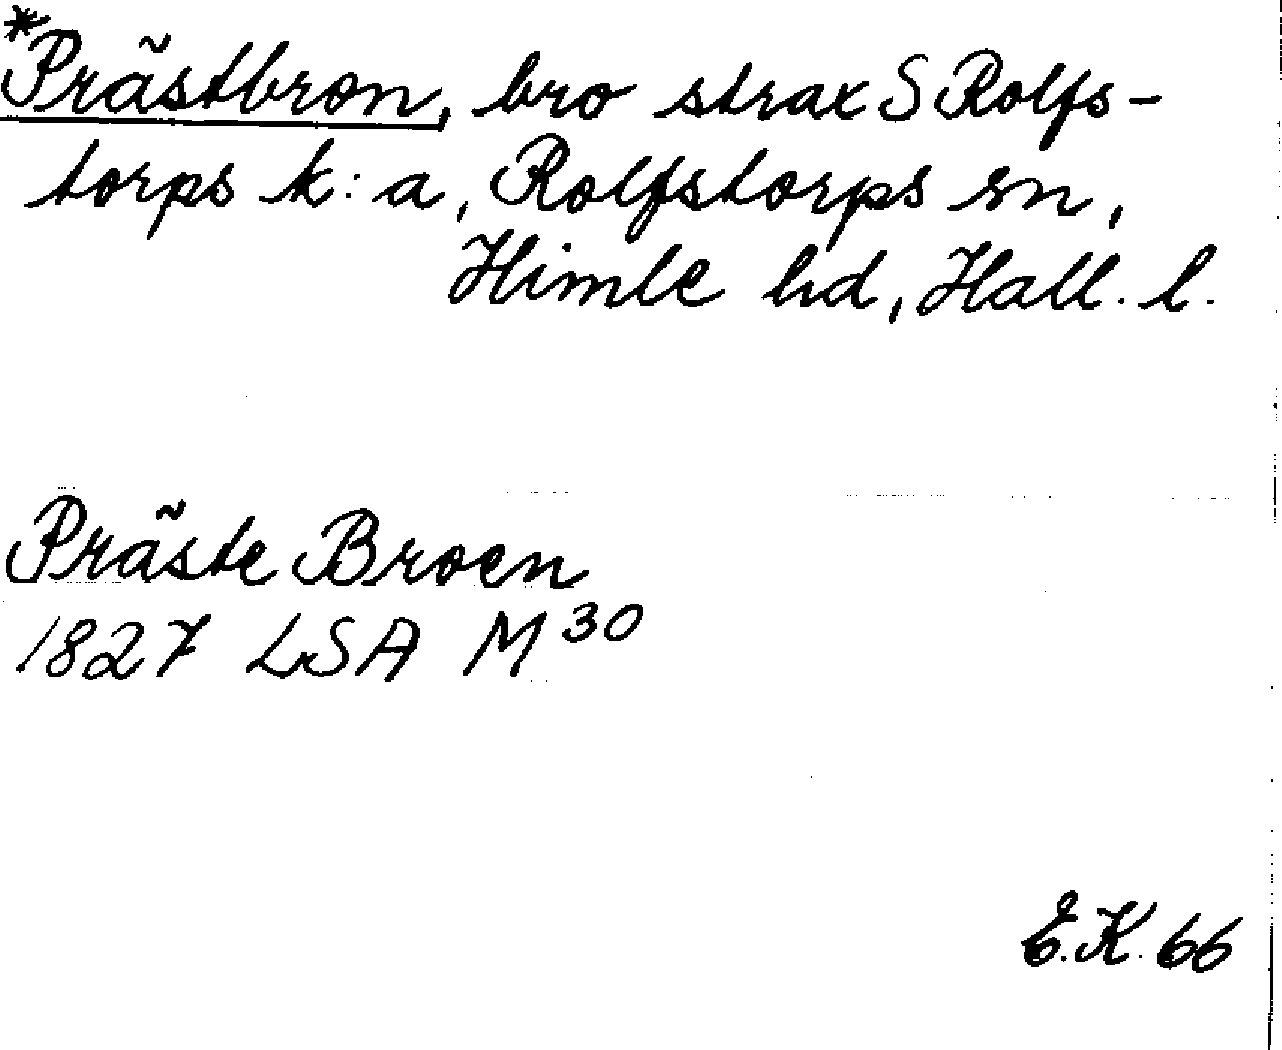 *Prästbron, bro strax S Rolfs-
torps k:a, Rolfstorps sn,
Himle hd, Hall. l.
Präste Broen
1827 LSA M30
E.K. 66